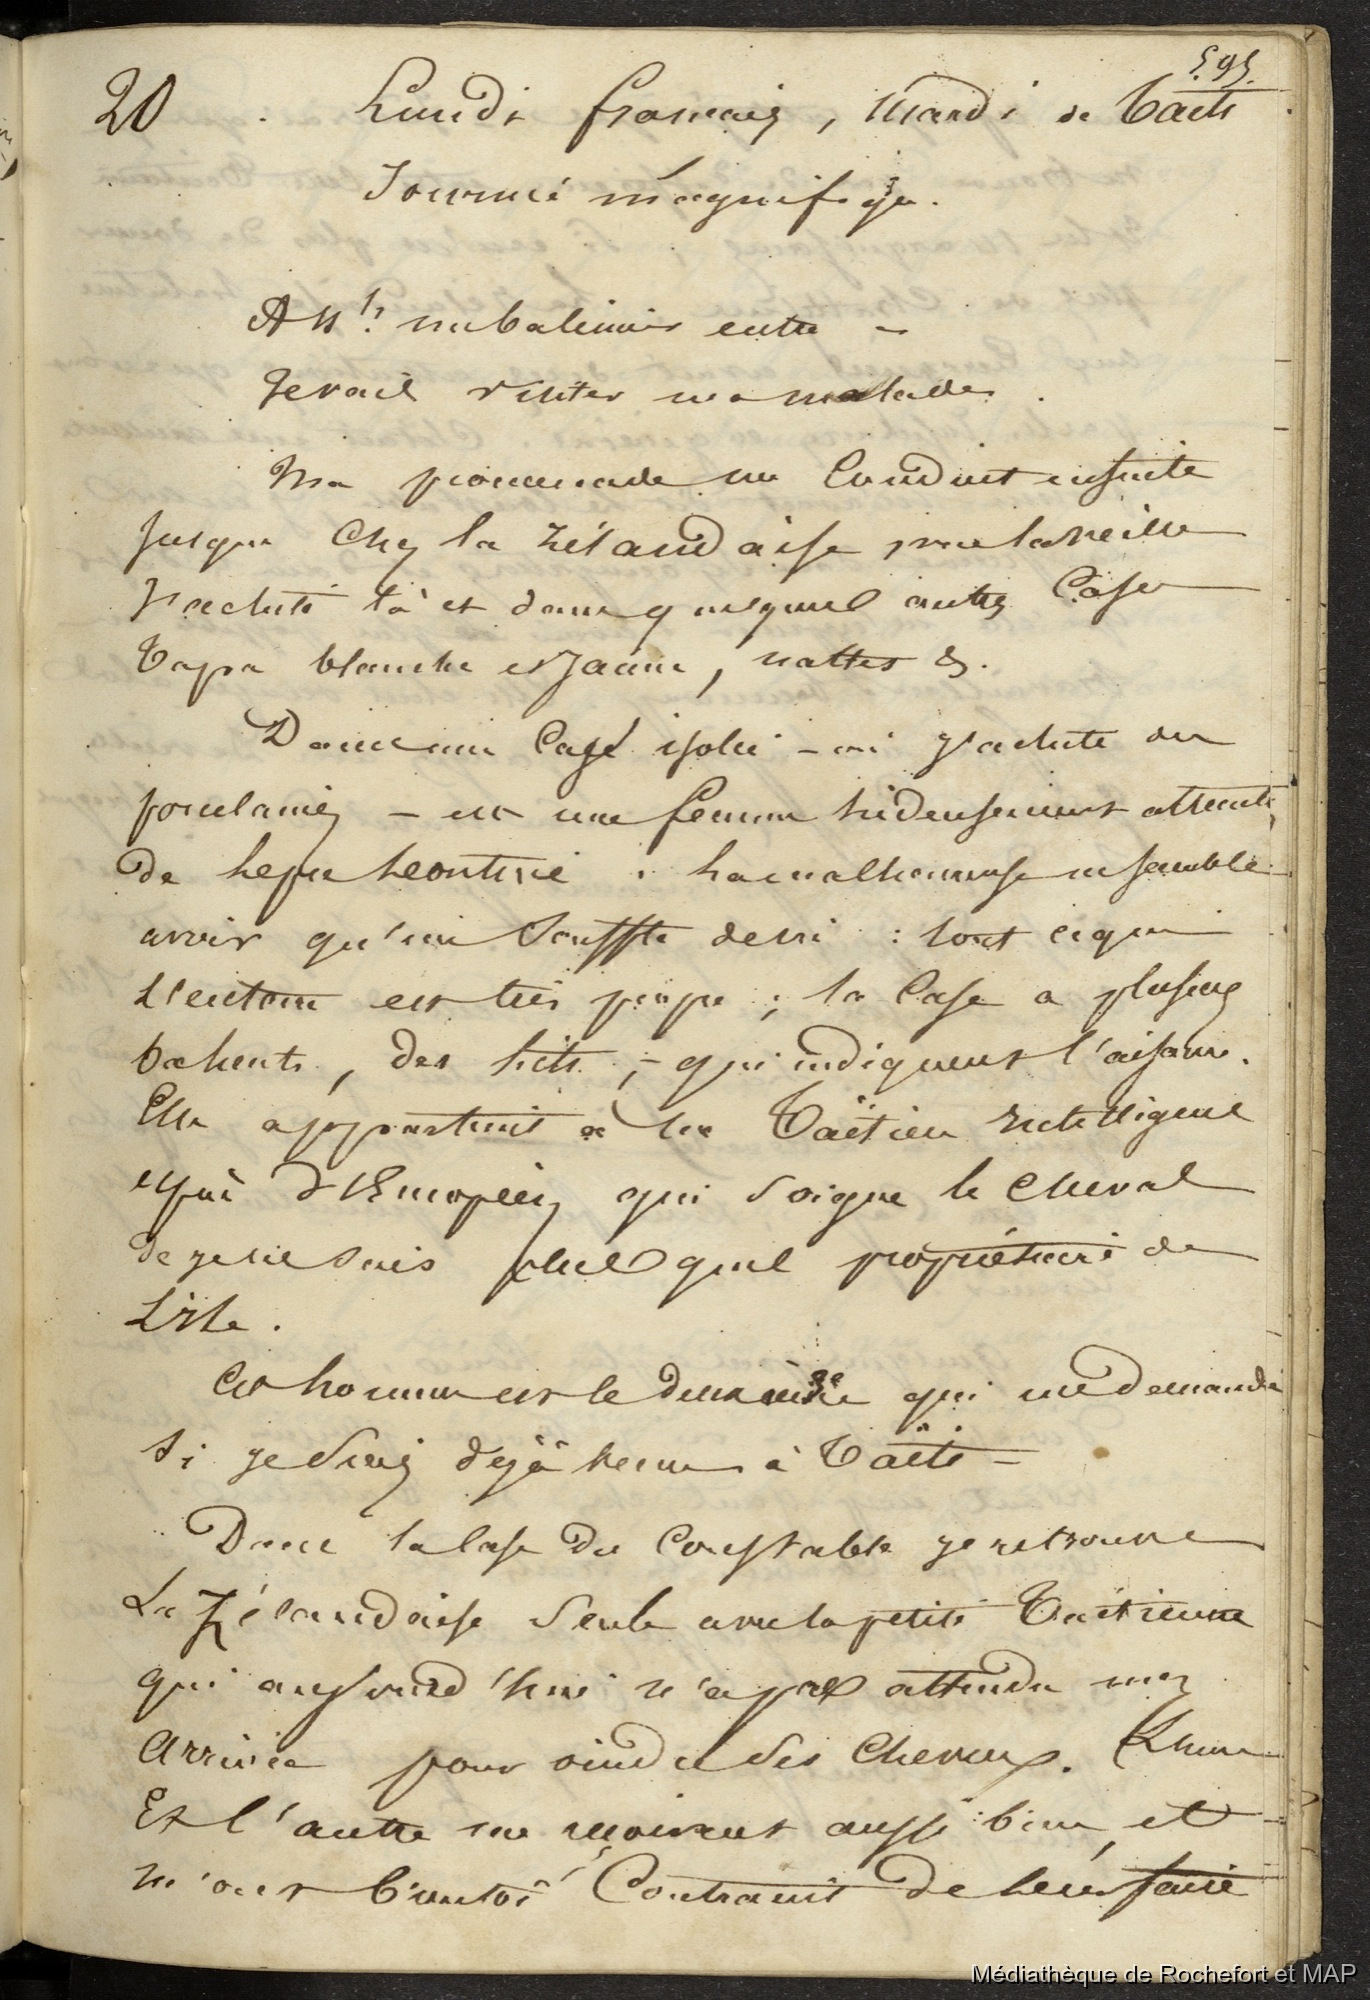 595.
20 Lundi français, Mardi de Taïti
Journée magnifique.
A 11 h. un baleinier entre –
Je vais visiter mes malades.
Ma promenade me conduit ensuite
jusque chez la Zélandaise vue la veille
J'achète là et dans quelques autres cases
Tapa blanche et jaune, nattes &.
Dans une case isolée – où j'achète des
porcelaines – est une femme hideusement atteinte
de lèpre léontine : la malheureuse ne semble
avoir qu'un souffle de vie : tout ce qui
l'entoure est très propre ; la case a plusieurs
bahuts, des lits, – qui indiquent l'aisance.
Elle appartient à un Taïtien intelligent
et qui d'Européens qui soigne le cheval
de je ne sais plus quel propriétaire de
l'île.
Cet homme est le deuxième qui me demande
si je suis déjà venu à Taïti –
Dans la case du constable je retrouve
la Zélandaise seule avec la petite Taïtienne
qui aujourd'hui n'a pas attendu mon
arrivée pour oindre ses cheveux. L'une
et l'autre me reçoivent aussi bien, et
m'ont bientôt contraint de leur faire
Médiathèque de Rochefort et MAP